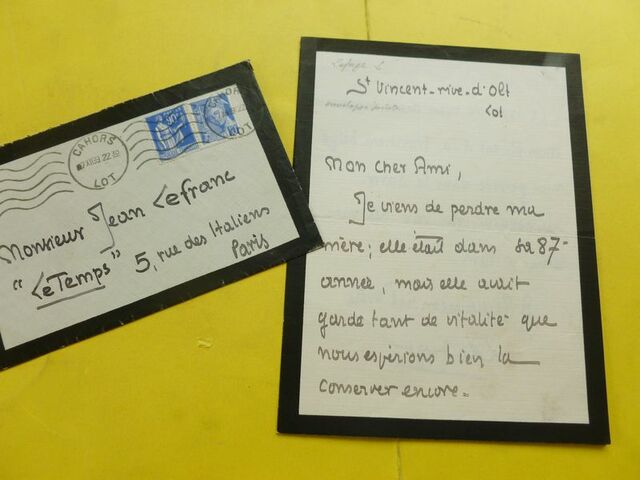 CAHORS
LOT
90c
Monsieur Jean Lefranc
"Le Temps" 5, rue des Italiens
Paris
St Vincent-rive-d'Olt
Lot
Mon cher Ami,
Je viens de perdre ma
mère; elle était dans sa 87e
année, mais elle avait
gardé tant de vitalité que
nous espérions bien la
conserver encore.